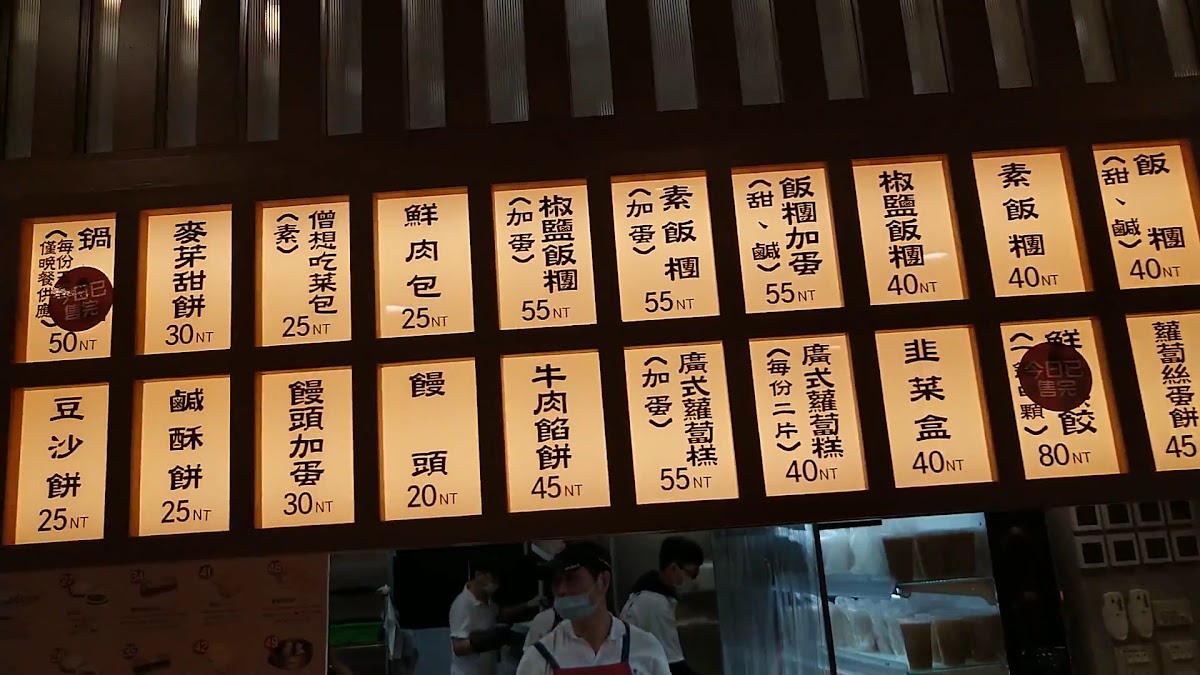 飯糰
(甜、鹹)
40NT
素飯糰
40NT
椒鹽飯糰
40NT
飯糰加蛋
(甜、鹹)
55NT
素飯糰
(加蛋)
55NT
椒鹽飯糰
(加蛋)
55NT
鮮肉包
25NT
僧想吃菜包
(素)
25NT
麥芽甜餅
30NT
鍋
(每份
僅晚餐供應)
今日已
售完
50NT
蘿蔔絲蛋餅
45
鮮 餃
顆)
今日已
售完
80NT
韭菜盒
40NT
廣式蘿蔔糕
(每份二片)
40NT
廣式蘿蔔糕
(加蛋)
55NT
牛肉餡餅
45NT
饅頭
20NT
饅頭加蛋
30NT
鹹酥餅
25NT
豆沙餅
25NT
34
41
48
42
49